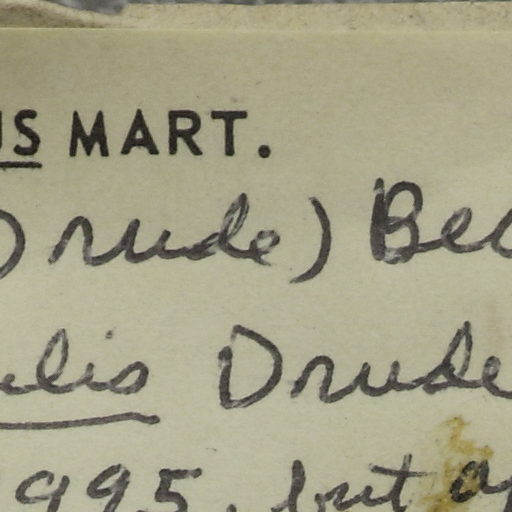 US MART.
Drude) Bec
ulis Drude
1995, but ap